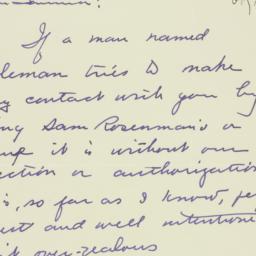 If a man named
leman tries to make
y contact with you by
ing Sam Rosenman's or
it is without our
ection or authorization
is, so far as I know, per
and well intentioni
over-zealous